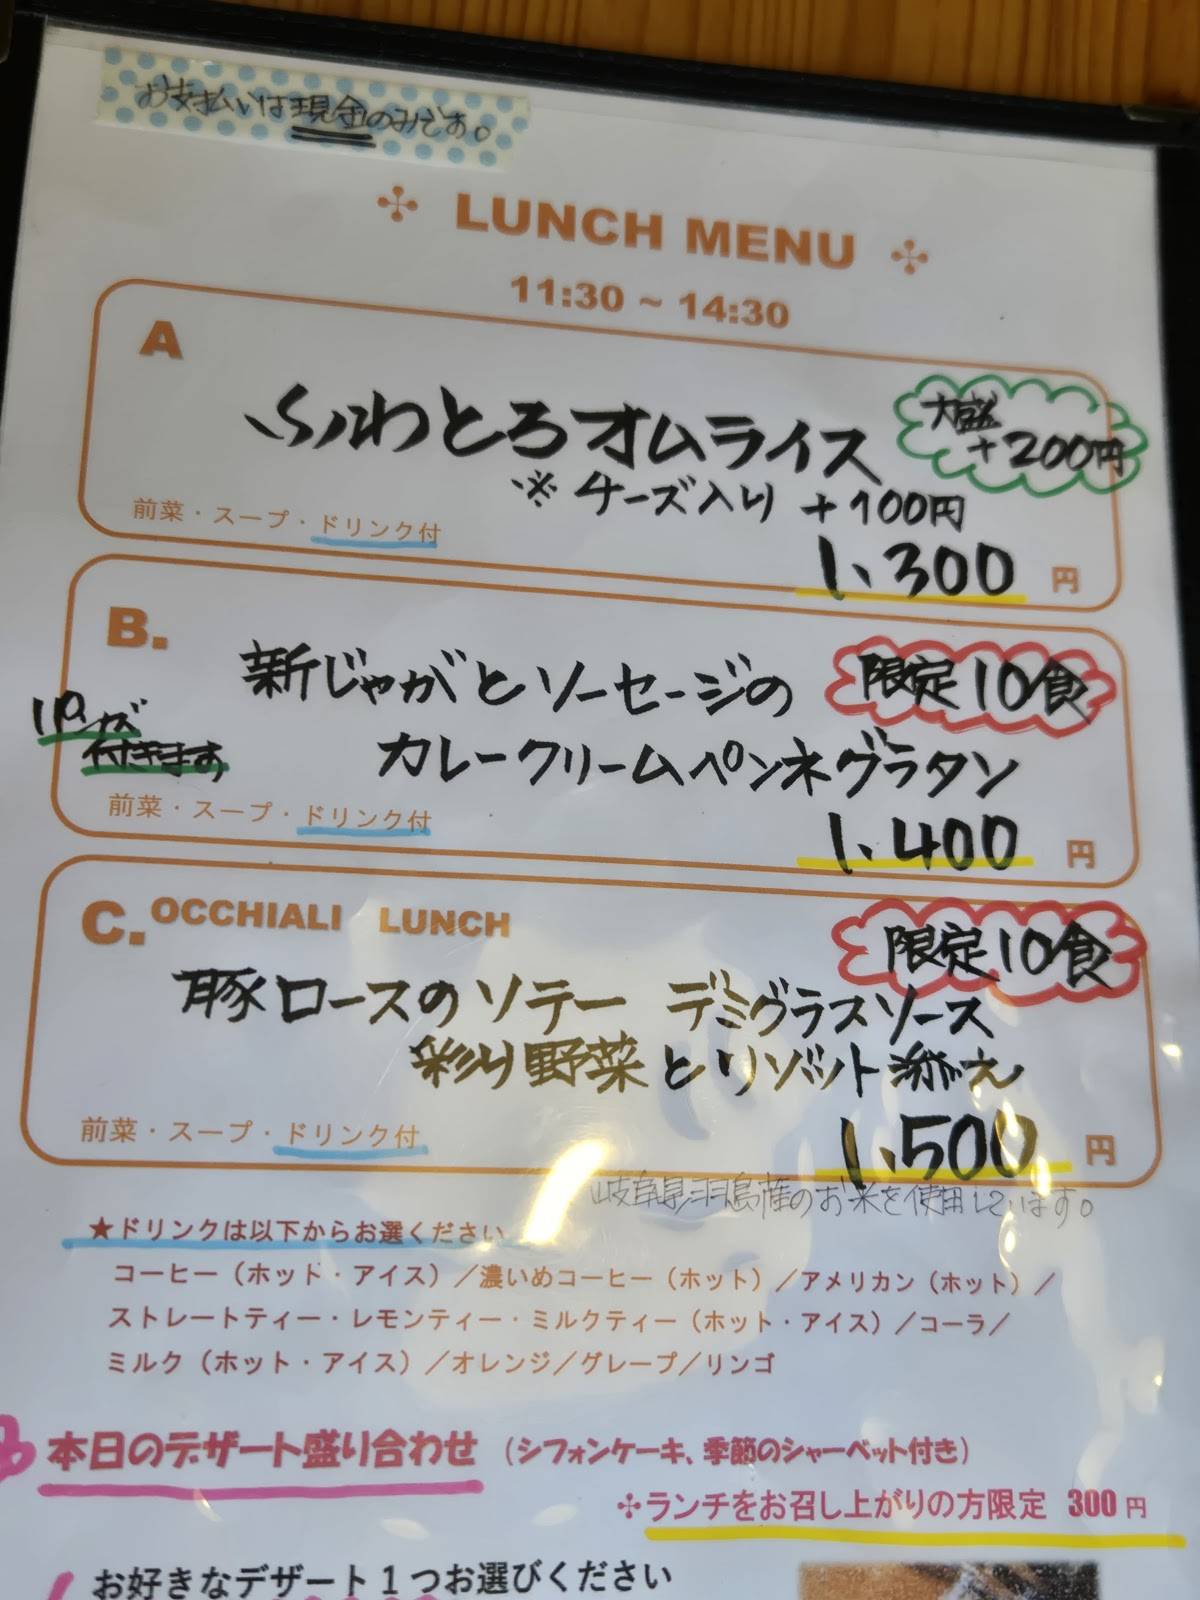 お支払いは現金のみです。
LUNCH MENU
11:30 ~ 14:30
A
ふわとろオムライス
大盛
+200円
※チーズ入り +100円
前菜・スープ・ドリンク付
1,300 円
B.
新じゃがとソーセージの
限定10食
パンが
付きます
カレークリームペンネグラタン
前菜・スープ・ドリンク付
1,400 円
C. OCCHIALI LUNCH
限定10食
豚ロースのソテー デミグラスソース
彩り野菜とリゾット添え
前菜・スープ・ドリンク付
1,500 円
岐阜県羽島産のお米を使用しています。
★ドリンクは以下からお選びください
コーヒー（ホット・アイス）／濃いめコーヒー（ホット）／アメリカン（ホット）／
ストレートティー・レモンティー・ミルクティー（ホット・アイス）／コーラ／
ミルク（ホット・アイス）／オレンジ／グレープ／リンゴ
本日のデザート盛り合わせ （シフォンケーキ、季節のシャーベット付き）
✣ランチをお召し上がりの方限定 300 円
お好きなデザート1つお選びください